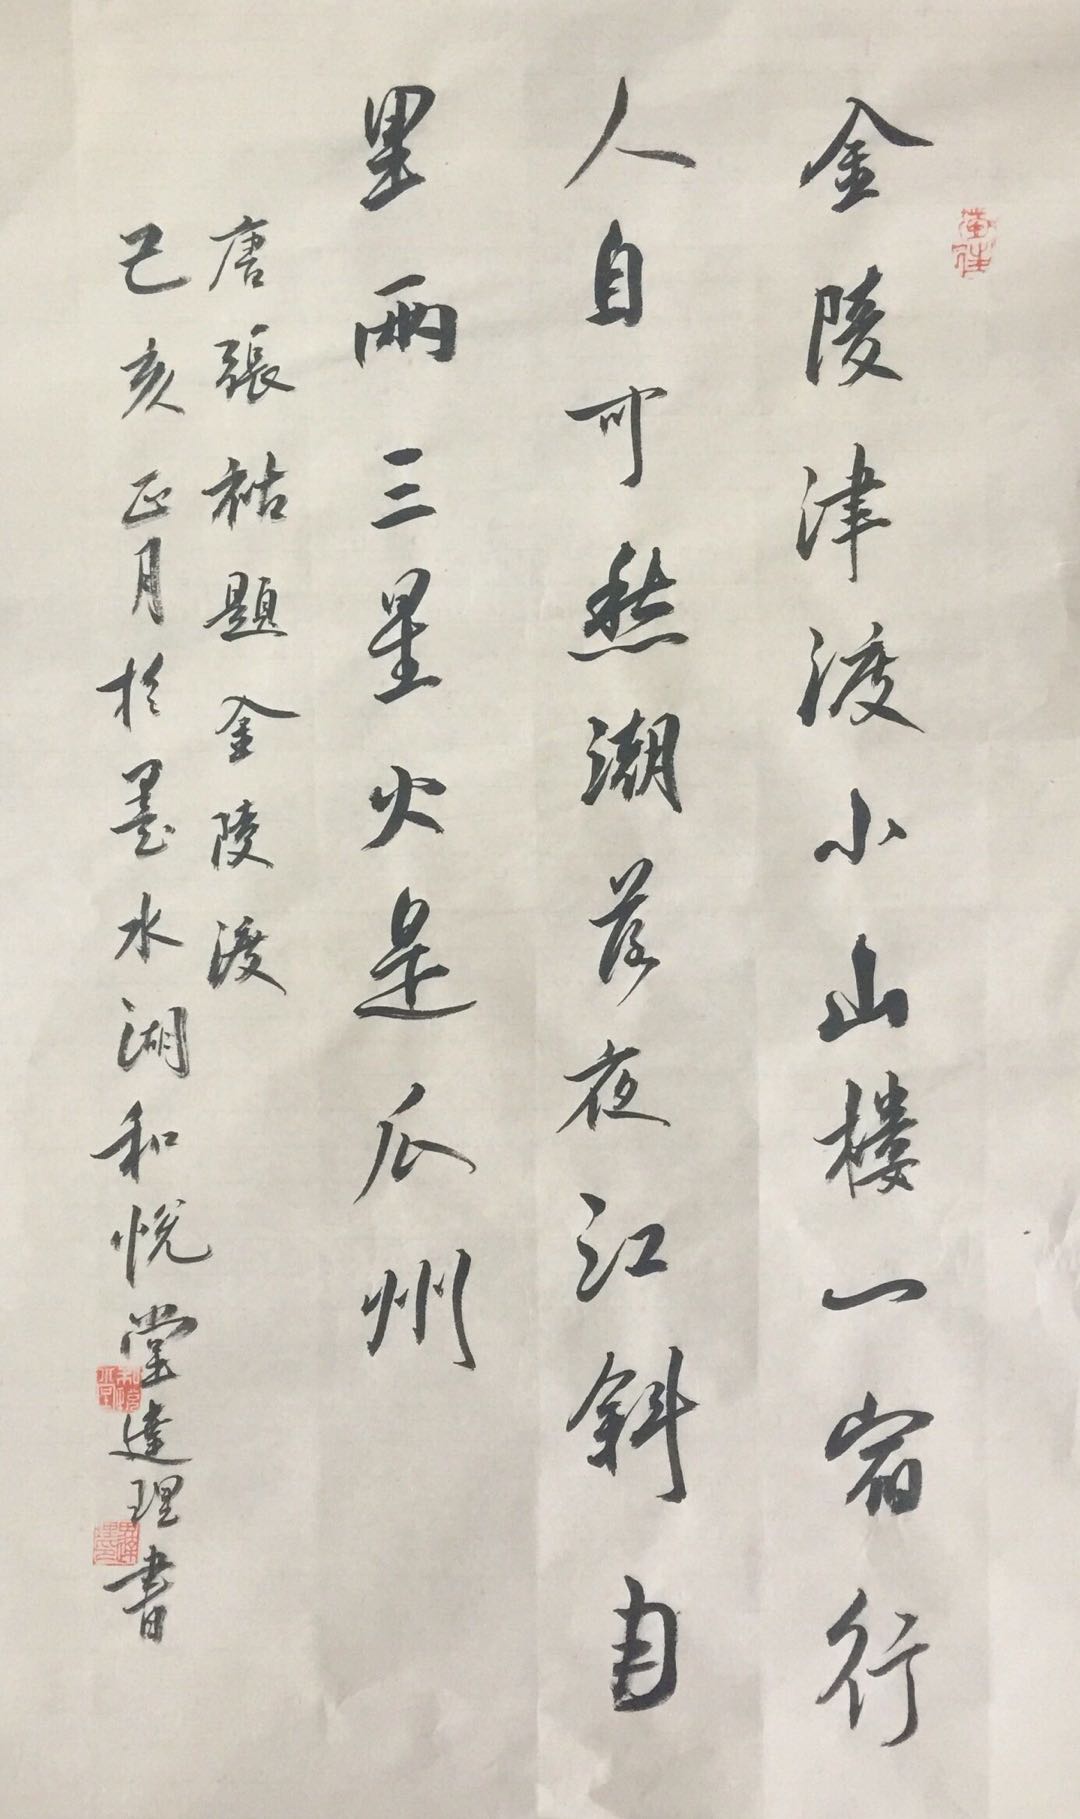 金陵津渡小山楼一宿行
人自可愁潮落夜江斜自
里兩三星火是瓜州
唐張祜題金陵渡
己亥正月於墨水湖和悦堂達理書